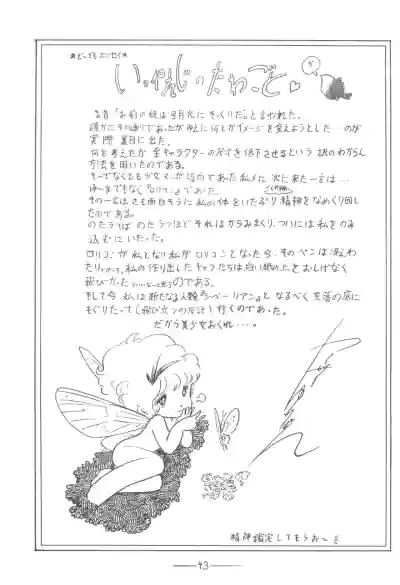 ★どーでもエッセイ★
いっかんじのたわごと♡
昔昔「お前の絵は弓月光にそっくりだ」と言われた。
確かにその通りであったがゆえに何とかイメージを変えようとした——のが
実際裏目に出た。
何を考えたか全キャラクターの尺寸を低下させるという訳のわからん
方法を用いたのである。
そーでなくとも少女マンガ指向であった私めに次に来た一言は…
ゆーまでもなく『ロリコン』であった
その一言はさも面白そうに私の体をいたぶり精神をなめくり回し
たのである。
のたうてば のたうつほどそれはからみまくり、ついには私をのみ
込むにいたった。
ロリコンが私となり私がロリコンとなった今、そのペンは冴えわ
たり、私の作り出したキャラたちは白い紙の上をおしげなく
飛びかったのである。
そして今、私は新たなる人種
となるべく玄海の底に
もぐりたって(飛び立つの反語)行くのであった。
だから美少女おくれ・・・・。
精神鑑定してもらお〜
43